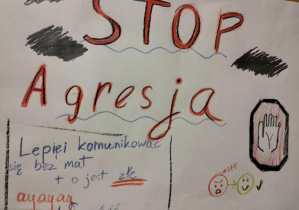 STOP
Agresja
Lepiej komunikować
się bez mat
+ o jest złe
ayayay